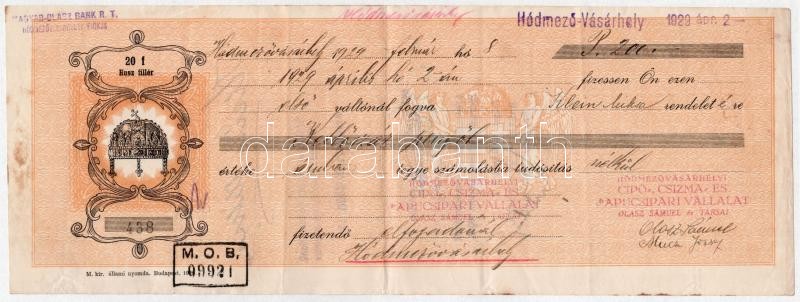 MAGYAR-OLASZ BANK R. T.
Hódmezővásárhely
Hódmező-Vásárhely 1929 ápr. 2-
20 f
Husz fillér
Hódmezővásárhely 1929 február hó 8
P. 200.-
1929 április hó 2 án fizessen Ön ezen
első váltónál fogva Klein rendelete re
Kettőszáz pengőt
értéke számolásba tudósitás nélkül
HÓDMEZŐVÁSÁRHELYI
CIPŐ-, CSIZMA- ÉS
PAPUCSIPARI VÁLLALAT
OLASZ SÁMUEL és TÁRSAI
HÓDMEZŐVÁSÁRHELYI
CIPŐ-, CSIZMA- ÉS
PAPUCSIPARI VÁLLALAT
OLASZ SÁMUEL és TÁRSAI
Olasz Sámuel
438
fizetendő
Hódmezővásárhely
M. O. B.
09921
M. kir. állami nyomda. Budapest.
darabanth.com